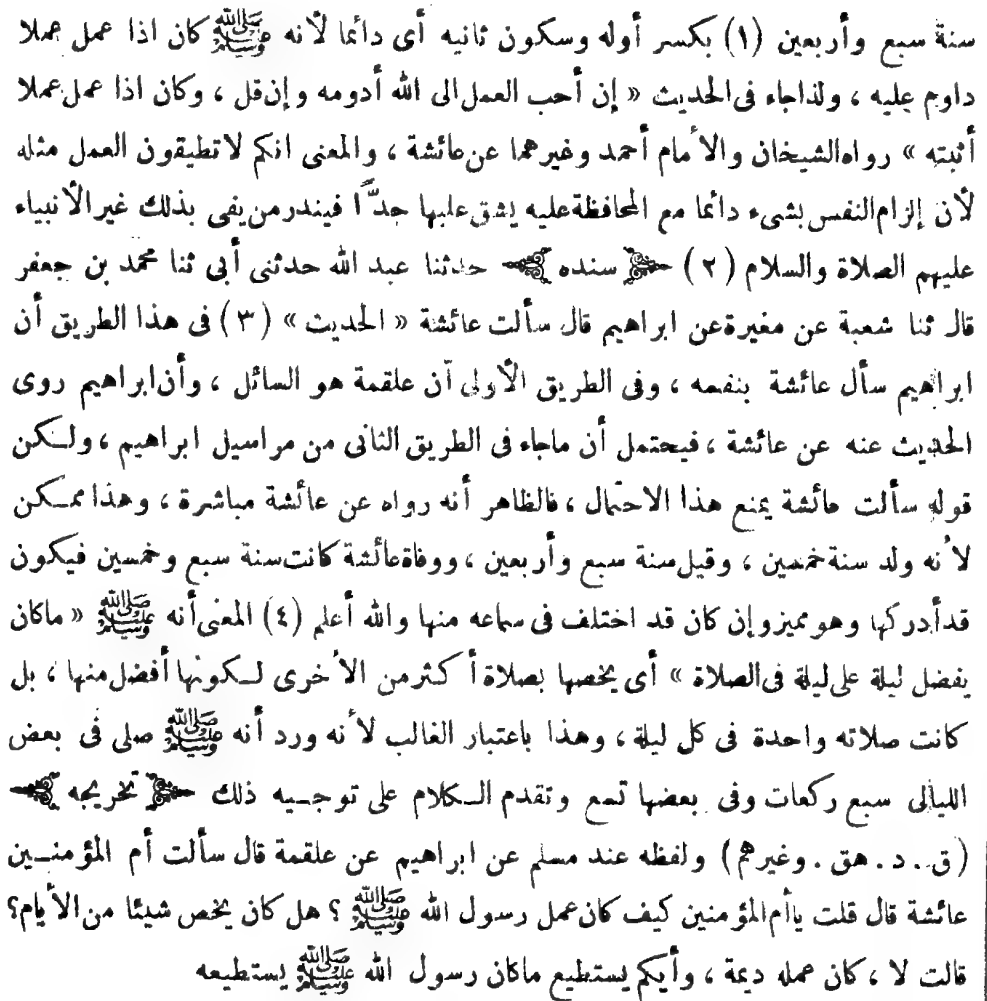 سنة سبع وأربعين (١) بكسر أوله وسكون ثانيه أى دائما لأنه ﷺ كان اذا عمل عملا
داوم عليه ، ولذا جاء فى الحديث « إن أحب العمل الى الله أدومه وإن قل ، وكان اذا عمل عملا
أثبته » رواه الشيخان والأمام أحمد وغيرهما عن عائشة ، والمعنى انكم لا تطيقون العمل مثله
لأن إلزام النفس بشىء دائما مع المحافظة عليه يشق عليها جدًّا فيندر من يفى بذلك غير الأنبياء
عليهم الصلاة والسلام (٢) ﴿ سنده ﴾ حدثنا عبد الله حدثنى أبى ثنا محمد بن جعفر
قال ثنا شعبة عن مغيرة عن ابراهيم قال سألت عائشة « الحديث » (٣) فى هذا الطريق أن
ابراهيم سأل عائشة بنفسه ، وفى الطريق الأولى أن علقمة هو السائل ، وأن ابراهيم روى
الحديث عنه عن عائشة ، فيحتمل أن ماجاء فى الطريق الثانى من مراسيل ابراهيم ، ولـكن
قوله سألت عائشة يمنع هذا الاحتمال ، فالظاهر أنه رواه عن عائشة مباشرة ، وهذا ممـكن
لأنه ولد سنة خمسين ، وقيل سنة سبع وأربعين ، ووفاة عائشة كانت سنة سبع وخمسين فيكون
قد أدركها وهو مميز وإن كان قد اختلف فى سماعه منها والله أعلم (٤) المعنى أنه ﷺ « ماكان
يفضل ليلة على ليلة فى الصلاة » أى يخصها بصلاة أكثر من الأخرى لـكونها أفضل منها ، بل
كانت صلاته واحدة فى كل ليلة ، وهذا باعتبار الغالب لأنه ورد أنه ﷺ صلى فى بعض
الليالى سبع ركعات وفى بعضها تسع وتقدم الـكلام على توجـيه ذلك ﴿ تخريجه ﴾
(ق . د . هق . وغيرهم) ولفظه عند مسلم عن ابراهيم عن علقمة قال سألت أم المؤمنـين
عائشة قال قلت ياأم المؤمنين كيف كان عمل رسول الله ﷺ ؟ هل كان يخص شيئا من الأيام؟
قالت لا ، كان عمله ديمة ، وأيكم يستطيع ماكان رسول الله ﷺ يستطيعه